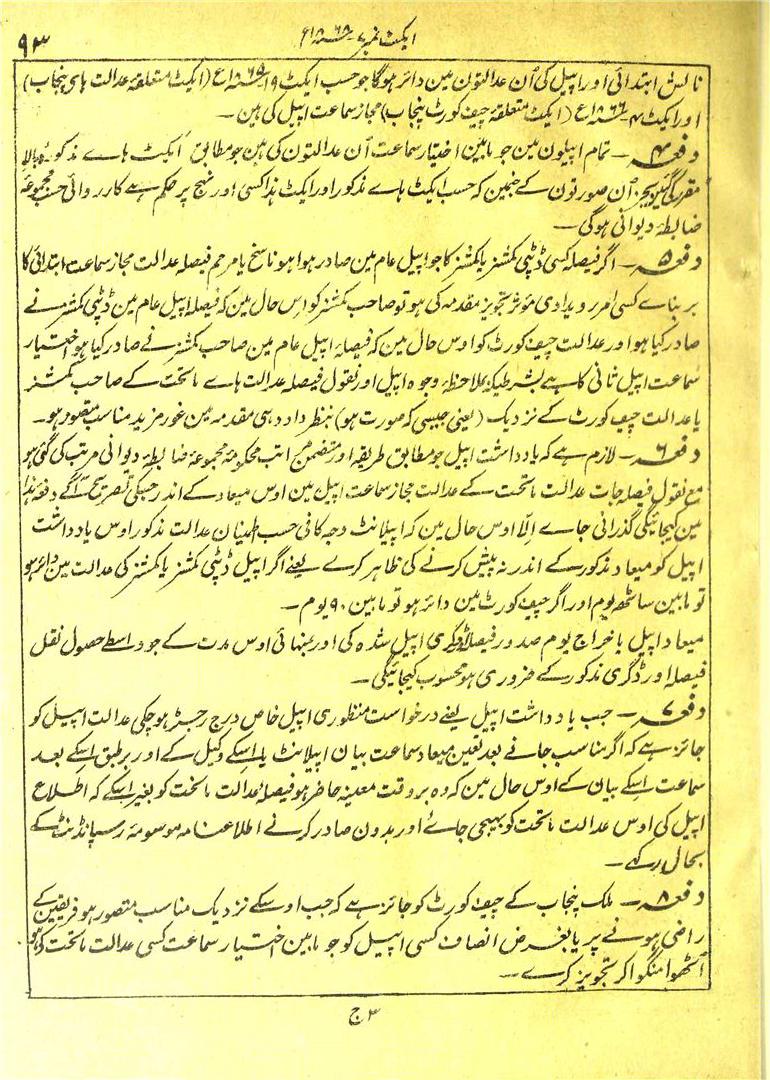 ایکٹ نمبر ۷ ۱۸۶۸ء
۹۳
نالش ابتدائی اور اپیل کی اُن عدالتون مین دائر ہوگا جو حسب ایکٹ ۱۹ ۱۸۶۵ء (ایکٹ متعلقہ عدالت ہای پنجاب)
اور ایکٹ ۴ ۱۸۶۶ء (ایکٹ متعلقہ چیف کورٹ پنجاب) مجاز سماعت اپیل کی ہین۔
دفعہ ۴۔ تمام اپیلون مین جو مابین اختیار سماعت اُن عدالتون کی ہین جو مطابق ایکٹ ہاے مذکورہ بالا
مقرر کی گئین بجز اُن صورتون کے جنمین کہ حسب ایکٹ ہاے مذکور اور ایکٹ ہذا کسی اور نہج پر حکم ہے کارروائی حسب مجموعۂ
ضابطۂ دیوانی ہوگی۔
دفعہ ۵۔ اگر فیصلہ کسی ڈپٹی کمشنر یا کمشنر کا جو اپیل عام مین صادر ہوا ہو ناسخ یا مرمم فیصلہ عدالت مجاز سماعت ابتدائی کا
بر بناے کسی امر رویدادی مؤثر تجویز مقدمہ کی ہو تو صاحب کمشنر کو اس حال مین کہ فیصلہ اپیل عام مین ڈپٹی کمشنر نے
صادر کیا ہو اور عدالت چیف کورٹ کو اوس حال مین کہ فیصلۂ اپیل عام مین صاحب کمشنر نے صادر کیا ہو اختیار
سماعت اپیل ثانی کا ہے بشرطیکہ بملاحظۂ وجوہ اپیل اور نقول فیصلہ عدالت ہاے ماتحت کے صاحب کمشنر
یا عدالت چیف کورٹ کے نزدیک (یعنی جیسی کہ صورت ہو) بنظر داد دہی مقدمہ مین غور مزید مناسب متصور ہو۔
دفعہ ۶۔ لازم ہے کہ یادداشت اپیل جو مطابق طریقہ اور متضمن مراتب محکومۂ مجموعۂ ضابطۂ دیوانی مرتب کی گئی ہو
مع نقول فیصلہ جات عدالت ماتحت کے عدالت مجاز سماعت اپیل مین اوس میعاد کے اندر جسکی تصریح آگے دفعہ ہذا
مین کیجائیگی گذرانی جاے اِلّا اوس حال مین کہ اپیلانٹ وجہ کافی حسب اطمینان عدالت مذکور اوس یادداشت
اپیل کو میعاد مذکور کے اندر نہ پیش کرنے کی ظاہر کرے یعنے اگر اپیل ڈپٹی کمشنر یا کمشنر کی عدالت مین دائر ہو
تو مابین ساٹھ یوم اور اگر چیف کورٹ مین دائر ہو تو مابین ۹۰ یوم۔
میعاد اپیل باخراج یوم صدور فیصلہ ڈگری اپیل شدہ کی اور بمنہائی اوس مدت کے جو واسطے حصول نقل
فیصلہ اور ڈگری مذکور کے ضروری ہو محسوب کیجائیگی۔
دفعہ ۷۔ جب یادداشت اپیل یعنے درخواست منظوری اپیل خاص درج رجسٹر ہوچکی عدالت اپیل کو
جائز ہے کہ اگر مناسب جانے بعد تعین میعاد سماعت بیان اپیلانٹ یا اسکے وکیل کے اور برطبق اسکے بعد
سماعت اسکے بیان کے اوس حال مین کہ وہ بر وقت معینہ حاضر ہو فیصلۂ عدالت ماتحت کو بغیر اسکے کہ اطلاع
اپیل کی اوس عدالت ماتحت کو بھیجی جاے اور بدون صادر کرنے اطلاعنامہ موسومۂ رسپانڈنٹ کے
بحال رکھے۔
دفعہ ۸۔ ملک پنجاب کے چیف کورٹ کو جائز ہے کہ جب اوسکے نزدیک مناسب متصور ہو فریقین کے
راضی ہونے پر یا بغرض انصاف کسی اپیل کو جو مابین اختیار سماعت کسی عدالت ماتحت کے ہو
اُٹھوا منگوا کر تجویز کرے۔
۳ ج